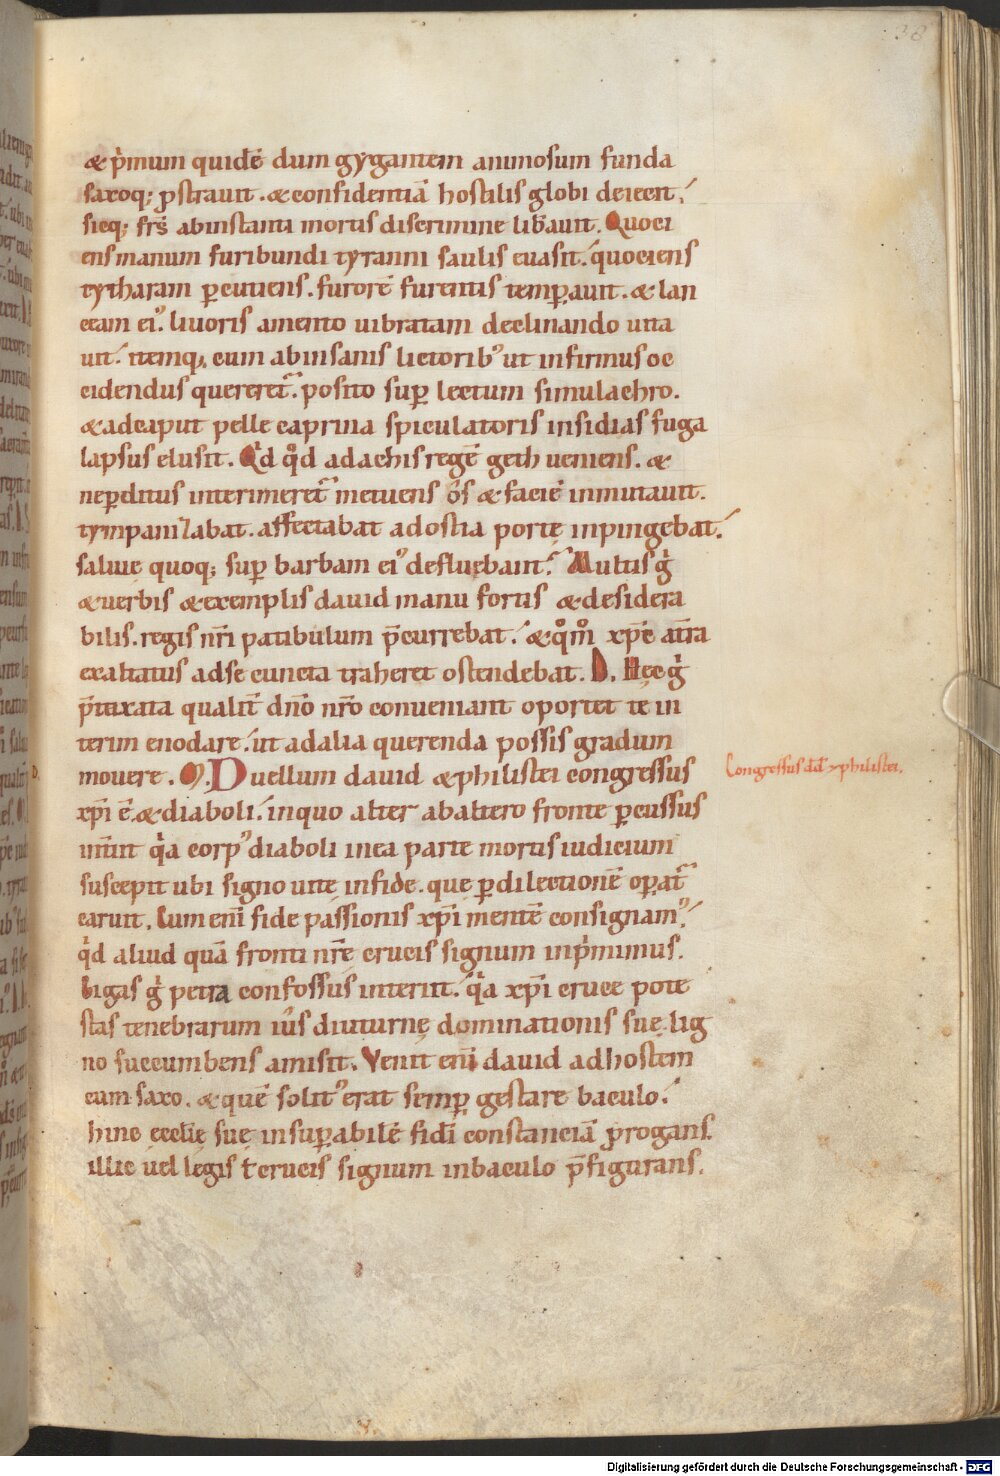 38
& p̍mum quidē dum gygantem animosum funda
saxoq; ꝓstrauit . & confidentiā hostilis globi deiecit ;
sicq; frs̄ abinstanti mortis discrimine lib̄auit . Quoci
ensmanum furibundi tyranni saulis euasit . quociens
cytharam ꝑcutiens . furorē furentis temꝑauit . & lan
ceam ei᾿ liuoris amento uibratam declinando uita
uit . itemq; cum abinsanis lictorib᾿ ut infirmus oc
cidendus quereret᷑ . posito suꝑ lectum simulachro .
& adcaput pelle caprina spiculatoris insidias fuga
lapsus elusit . Q̍d qd̊ adachis regē geth ueniens . &
neꝑditus interimeret᷑ metuens o̅s & faciē inmutauit .
tympanilabat . affectabat adostia portę inpingebat .
saliuę quoq; suꝑ barbam ei᾿ defluębant . Multis g̍
& uerbis & exemplis dauid manu fortis & desidera
bilis . regis nr̄i patibulum p̄currebat . & qm̊̊ xp̄c at̄ra
exaltatus adse cuncta traheret ostendebat . D . Hęc g̍
p̄taxata qualit̄ dn̄o nr̄o conueniant oportet te in
terim enodare . ut adalia querenda possis gradum
mouere . M . Duellum dauid & philistei congressus
xp̄i ē . & diaboli . inquo alter abaltero fronte ꝑcussus
int̄iit q̍a corp᾿ diaboli inea parte mortis iudicium
suscepit ubi signo uitę infide . que ꝑdilectionē oꝑat᷑
caruit . Cum enī fide passionis xp̄i mentē consignam᾿
q̍d aliud quā fronti nr̄ę crucis signum inp̍mimus .
Gigas g̍ petra confossus interiit . q̍a xp̄i cruce pote
stas tenebrarum ius̄ diuturnę dominationis suę lig
no succumbens amisit . Venit enī dauid adhostem
cum saxo . & quē solit᾿ erat semꝑ gestare baculo .
hinc ęcclię suę insuꝑabilē fidī constanciā ꝓrogans .
illic uel legis ł crucis signum inbaculo p̄figurans .
Congressus dd̄ & philistei .
Digitalisierung gefördert durch die Deutsche Forschungsgemeinschaft - DFG